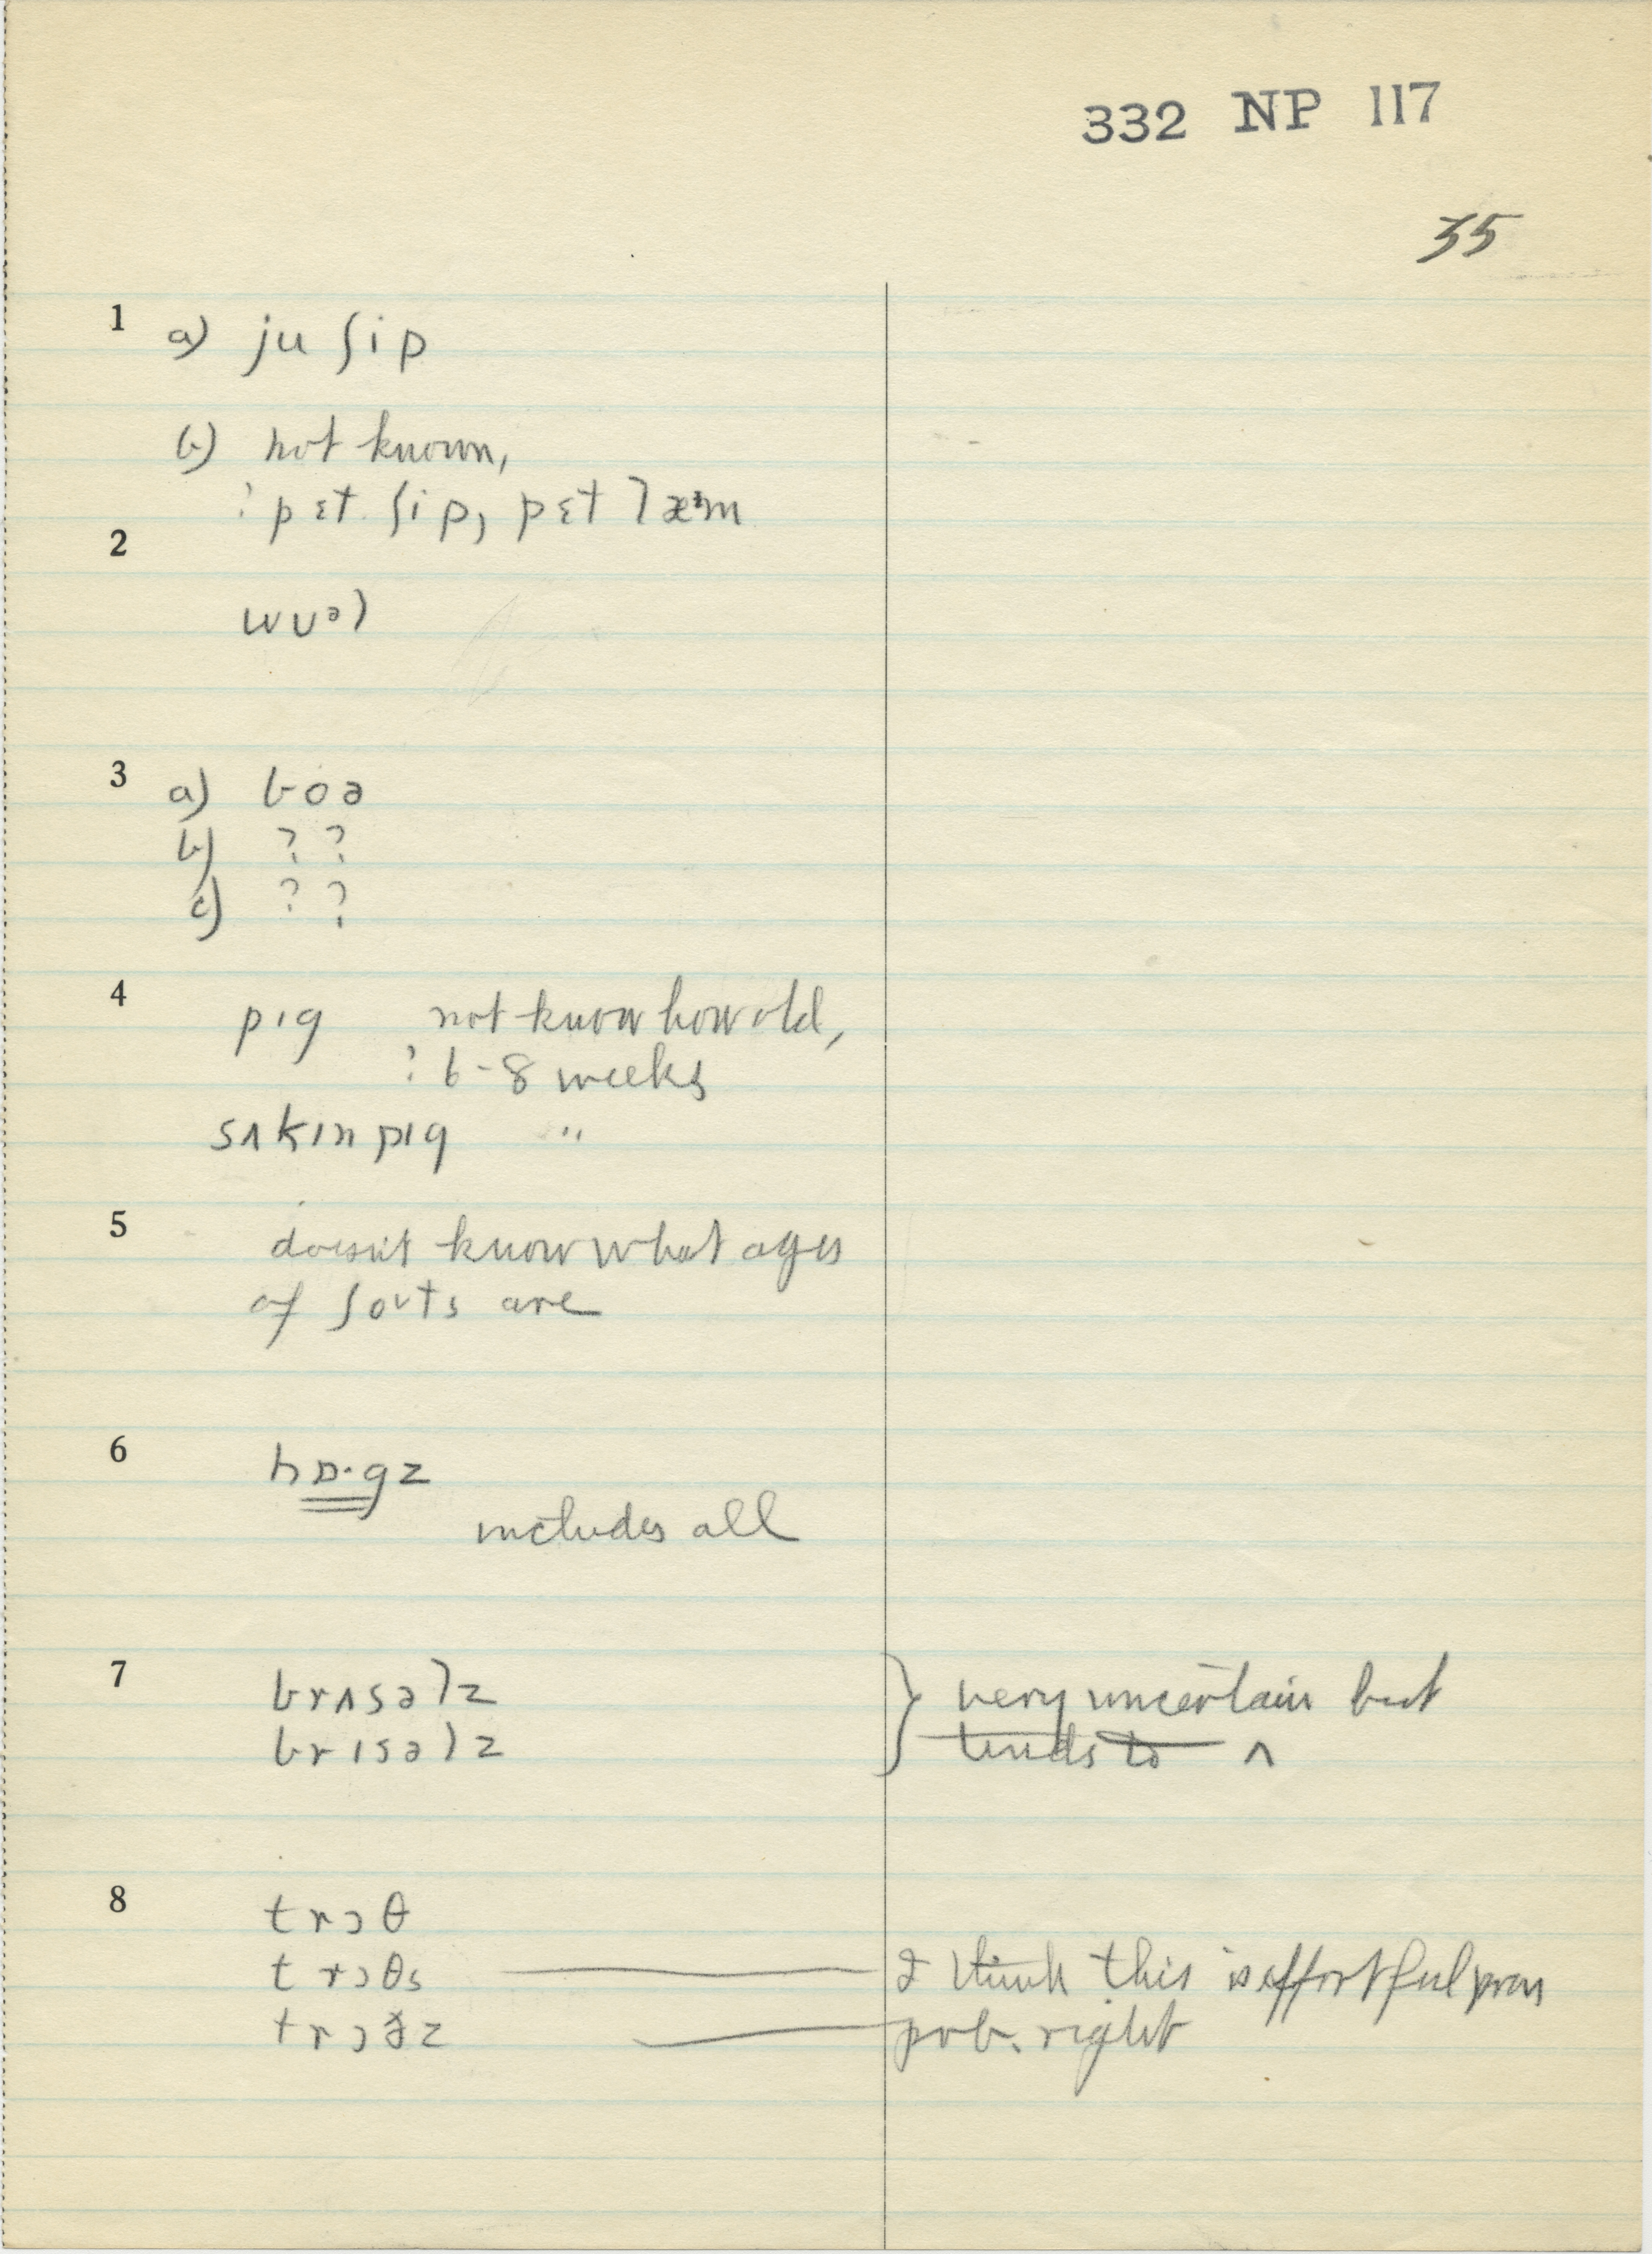 332 NP 117
35
1 a) ju ʃip
b) not known,
? pɛt ʃip, pɛt læᵊm
2
wʊᵊl
3 a) boə
b) ? ?
c) ? ?
4 pɪg not know how old,
? 6-8 weeks
sʌkɪn pɪg "
5 doesn't know what ages
of ʃoʊts are
6 hɒ·gz
includes all
7 brʌsəlz } very uncertain but
brɪsəlz tends to ʌ
8 trɔθ
trɔθs — I think this is effortful pron
trɔðz — prob. right